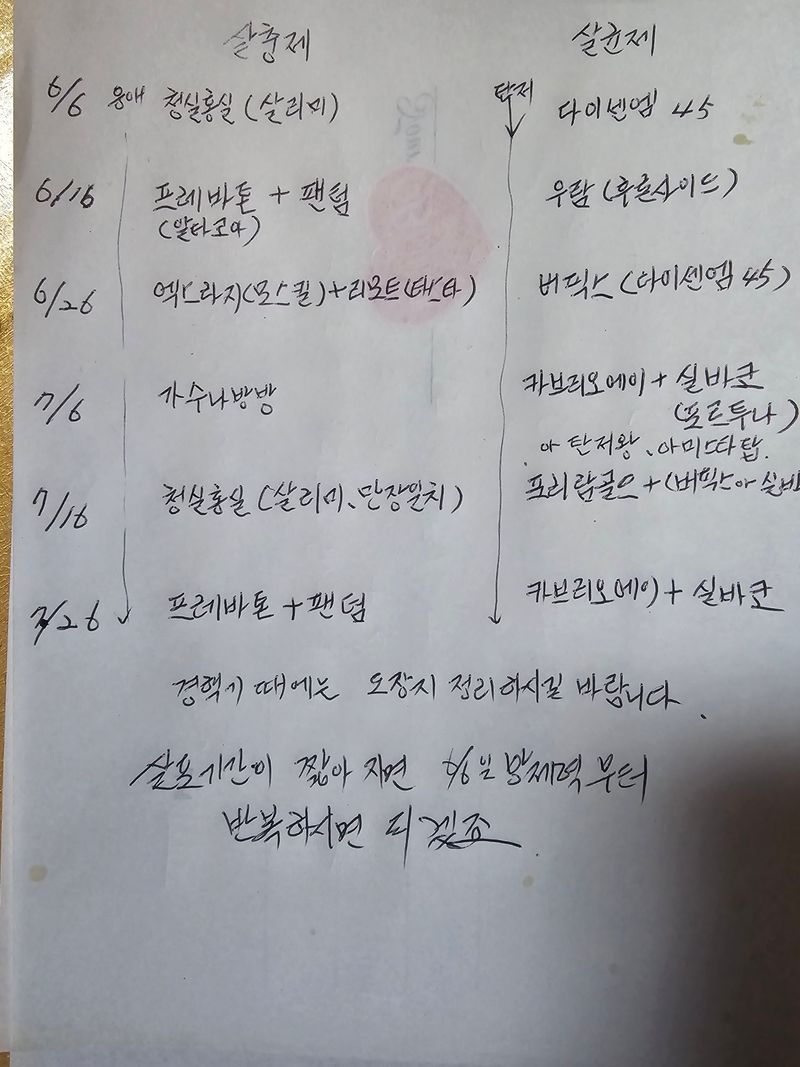 살충제 살균제
6/6 응애 청실홍실 (살리미) 탄저 다이센엠 45
6/16 프레바톤 + 팬텀 우람 (후론사이드)
(알타코아)
6/26 엑스라지(모스킬)+리모트(타스타) 버픽스 (다이센엠 45)
7/6 가수나방방 카브리오에이 + 실바코
(포르투나)
아 탄저왕, 아미스타탑.
7/16 청실홍실 (살리미, 단장일치) 프리람골드 + (버픽스아 실바
7/26 프레바톤 + 팬텀 카브리오에이 + 실바코
경핵기 때에는 도장지 정리하시길 바랍니다.
살포기간이 짧아 지면 6/6일 방제력 부터
반복하시면 되겠죠.